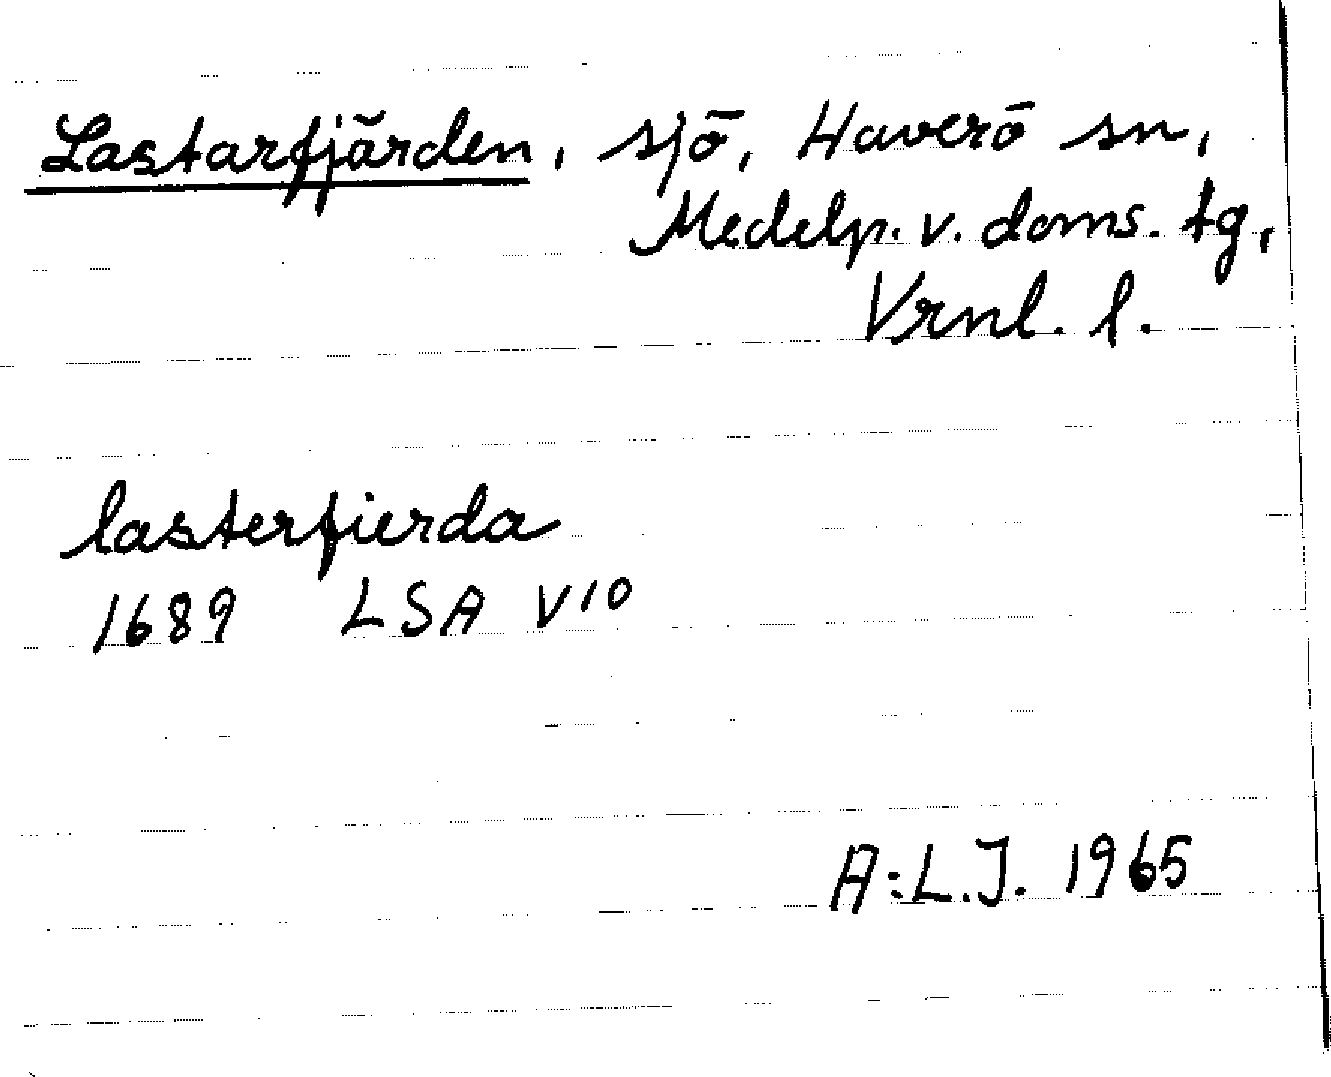 Lastarfjärden, sjö, Haverö sn,
Medelp. v. doms. tg,
Vrnl. l.
lasterfierda
1689 LSA V10
A:L.J. 1965